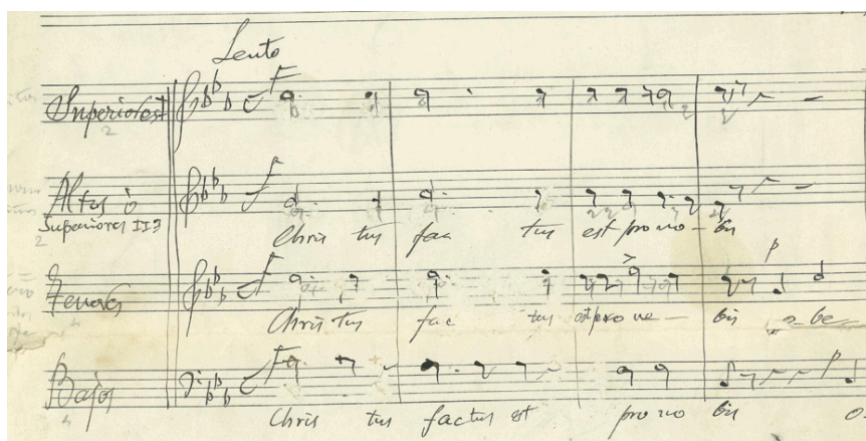 Lento
Superiores I
F
2
Altus ò
Superiores II
F
2
Chris tus fac tus est pro no - bis
Tenores
F
p
Chris tus fac tus est pro no - bis o-be
Bajos
F
p
Chris tus factus est pro no bis o-